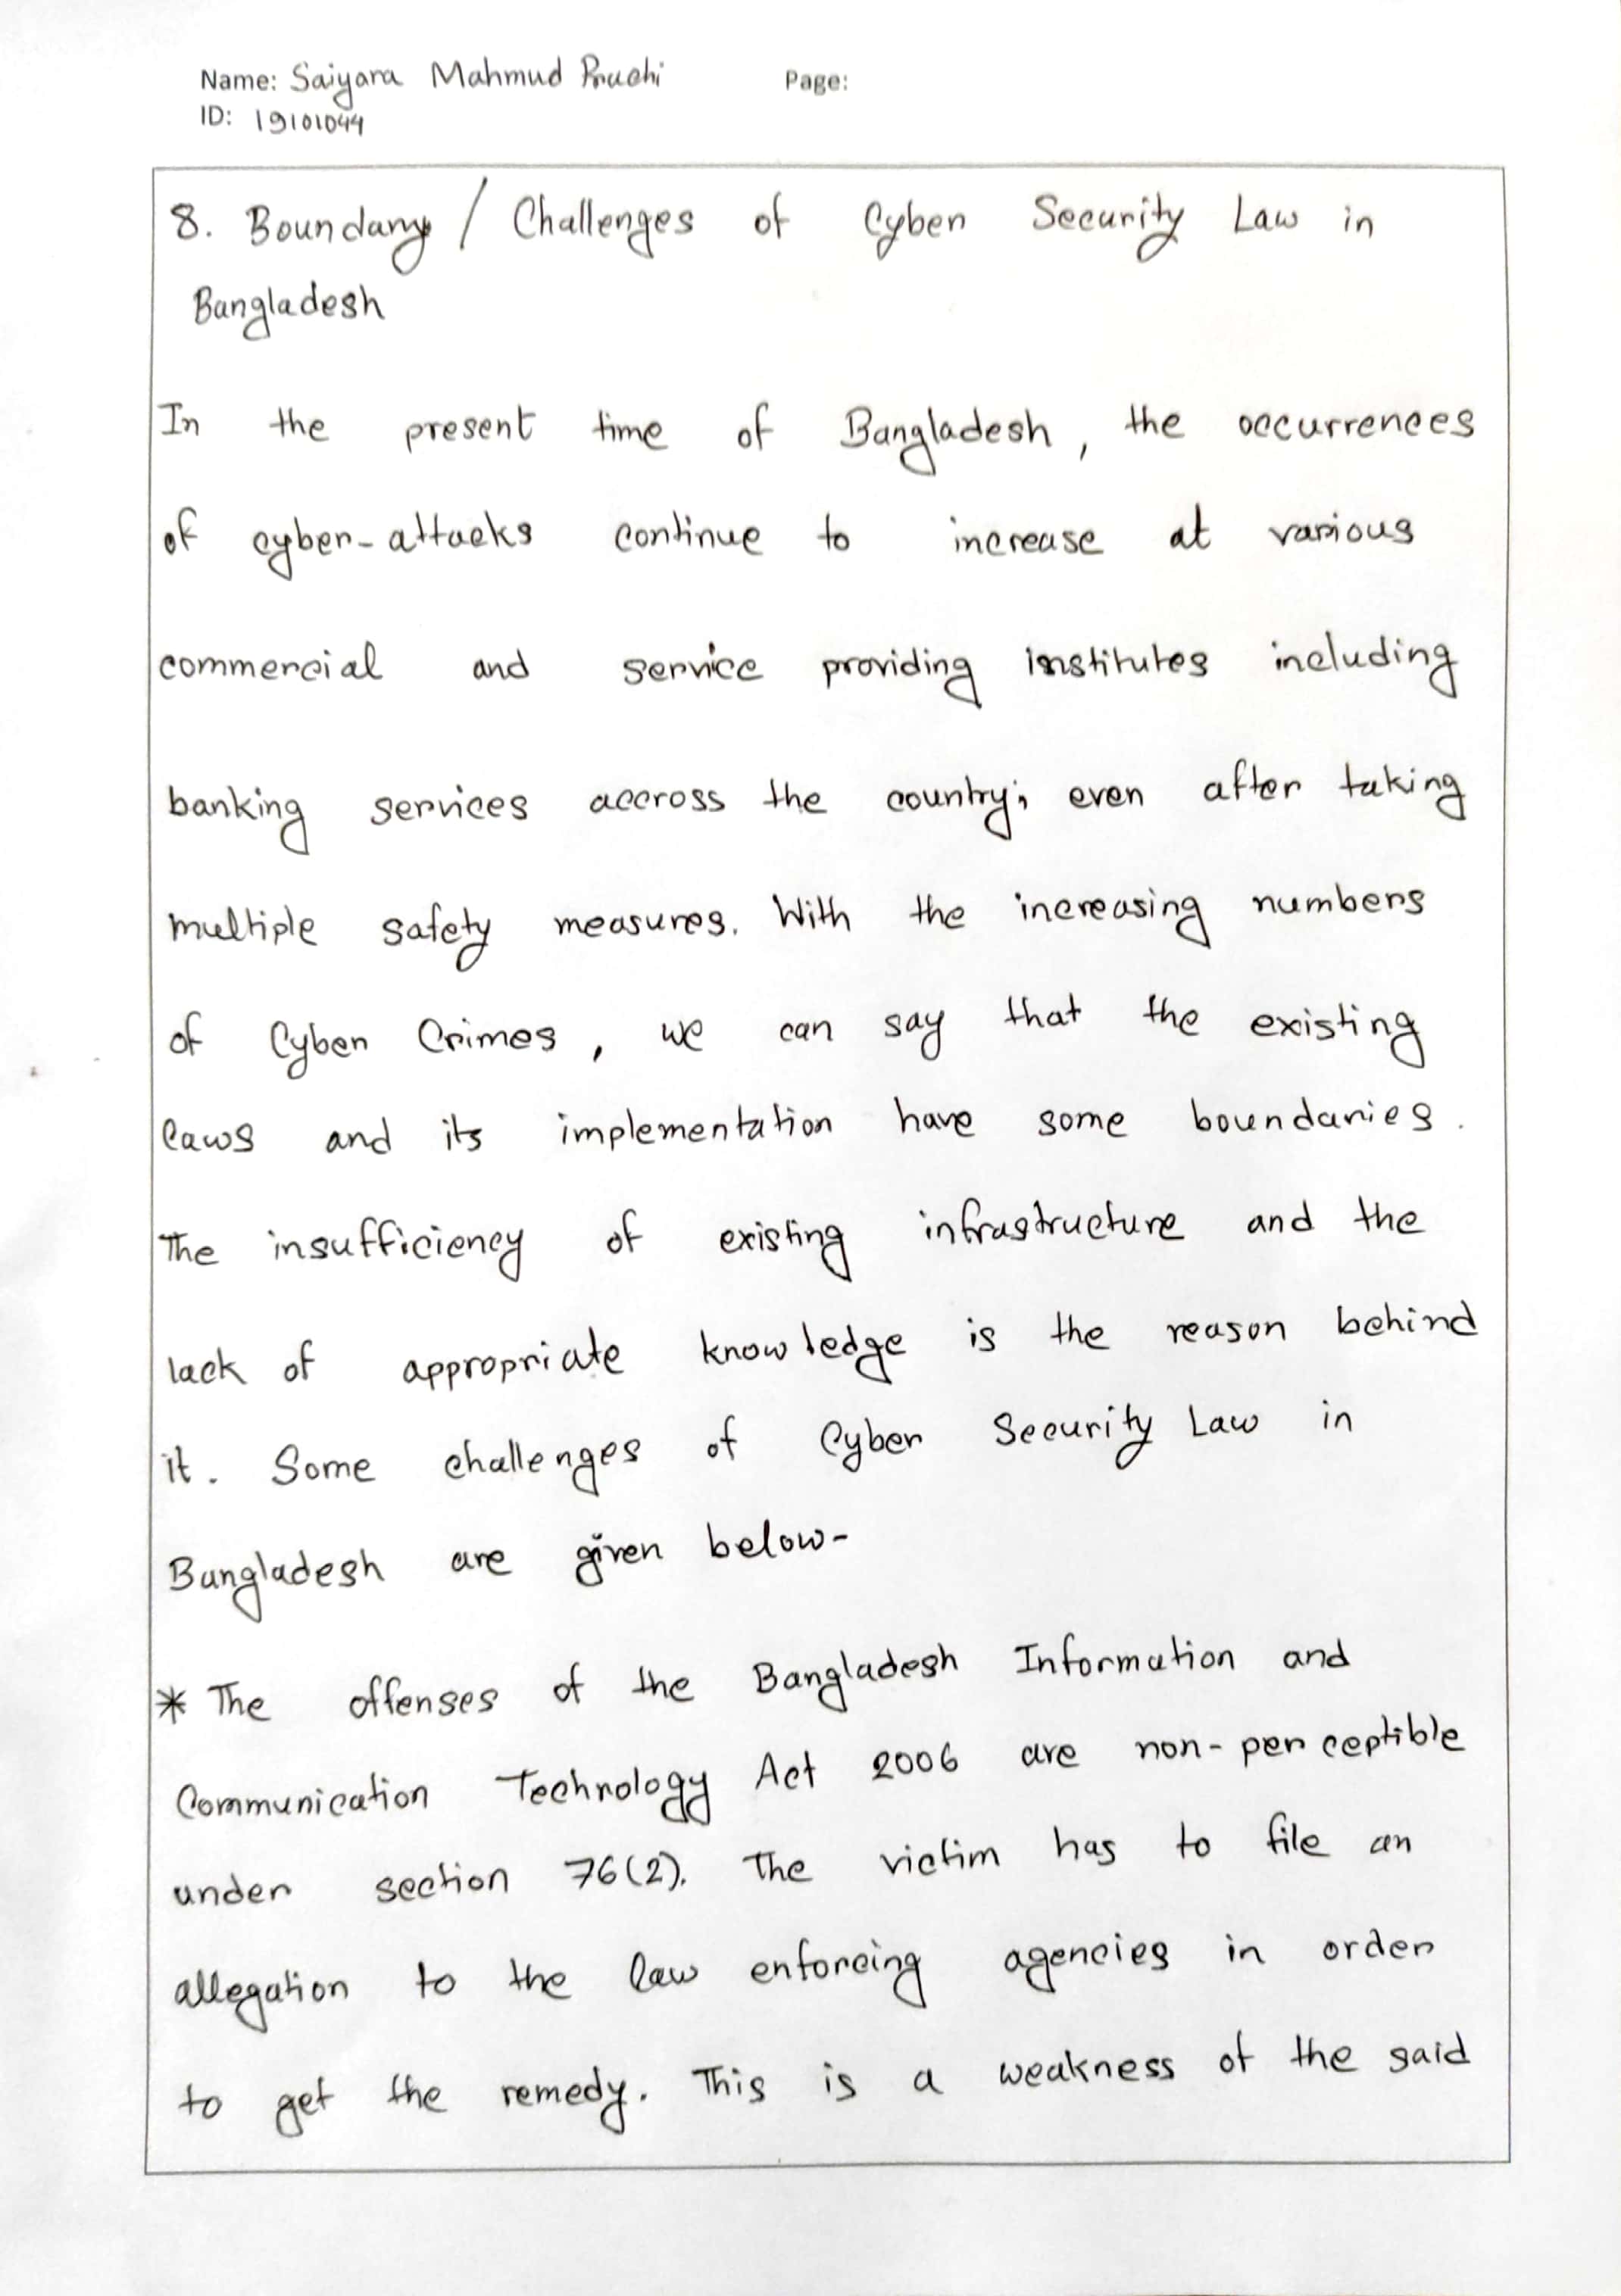 Name: Saiyara Mahmud Pruchi Page:
ID: 19101044
8. Boundary / Challenges of Cyber Security Law in
Bangladesh
In the present time of Bangladesh, the occurrences
of cyber-attacks continue to increase at various
commercial and service providing institutes including
banking services accross the country; even after taking
multiple safety measures. With the increasing numbers
of Cyber Crimes, we can say that the existing
laws and its implementation have some boundaries.
The insufficiency of existing infrastructure and the
lack of appropriate knowledge is the reason behind
it. Some challenges of Cyber Security Law in
Bangladesh are given below-
* The offenses of the Bangladesh Information and
Communication Technology Act 2006 are non-perceptible
under section 76(2). The victim has to file an
allegation to the law enforcing agencies in order
to get the remedy. This is a weakness of the said